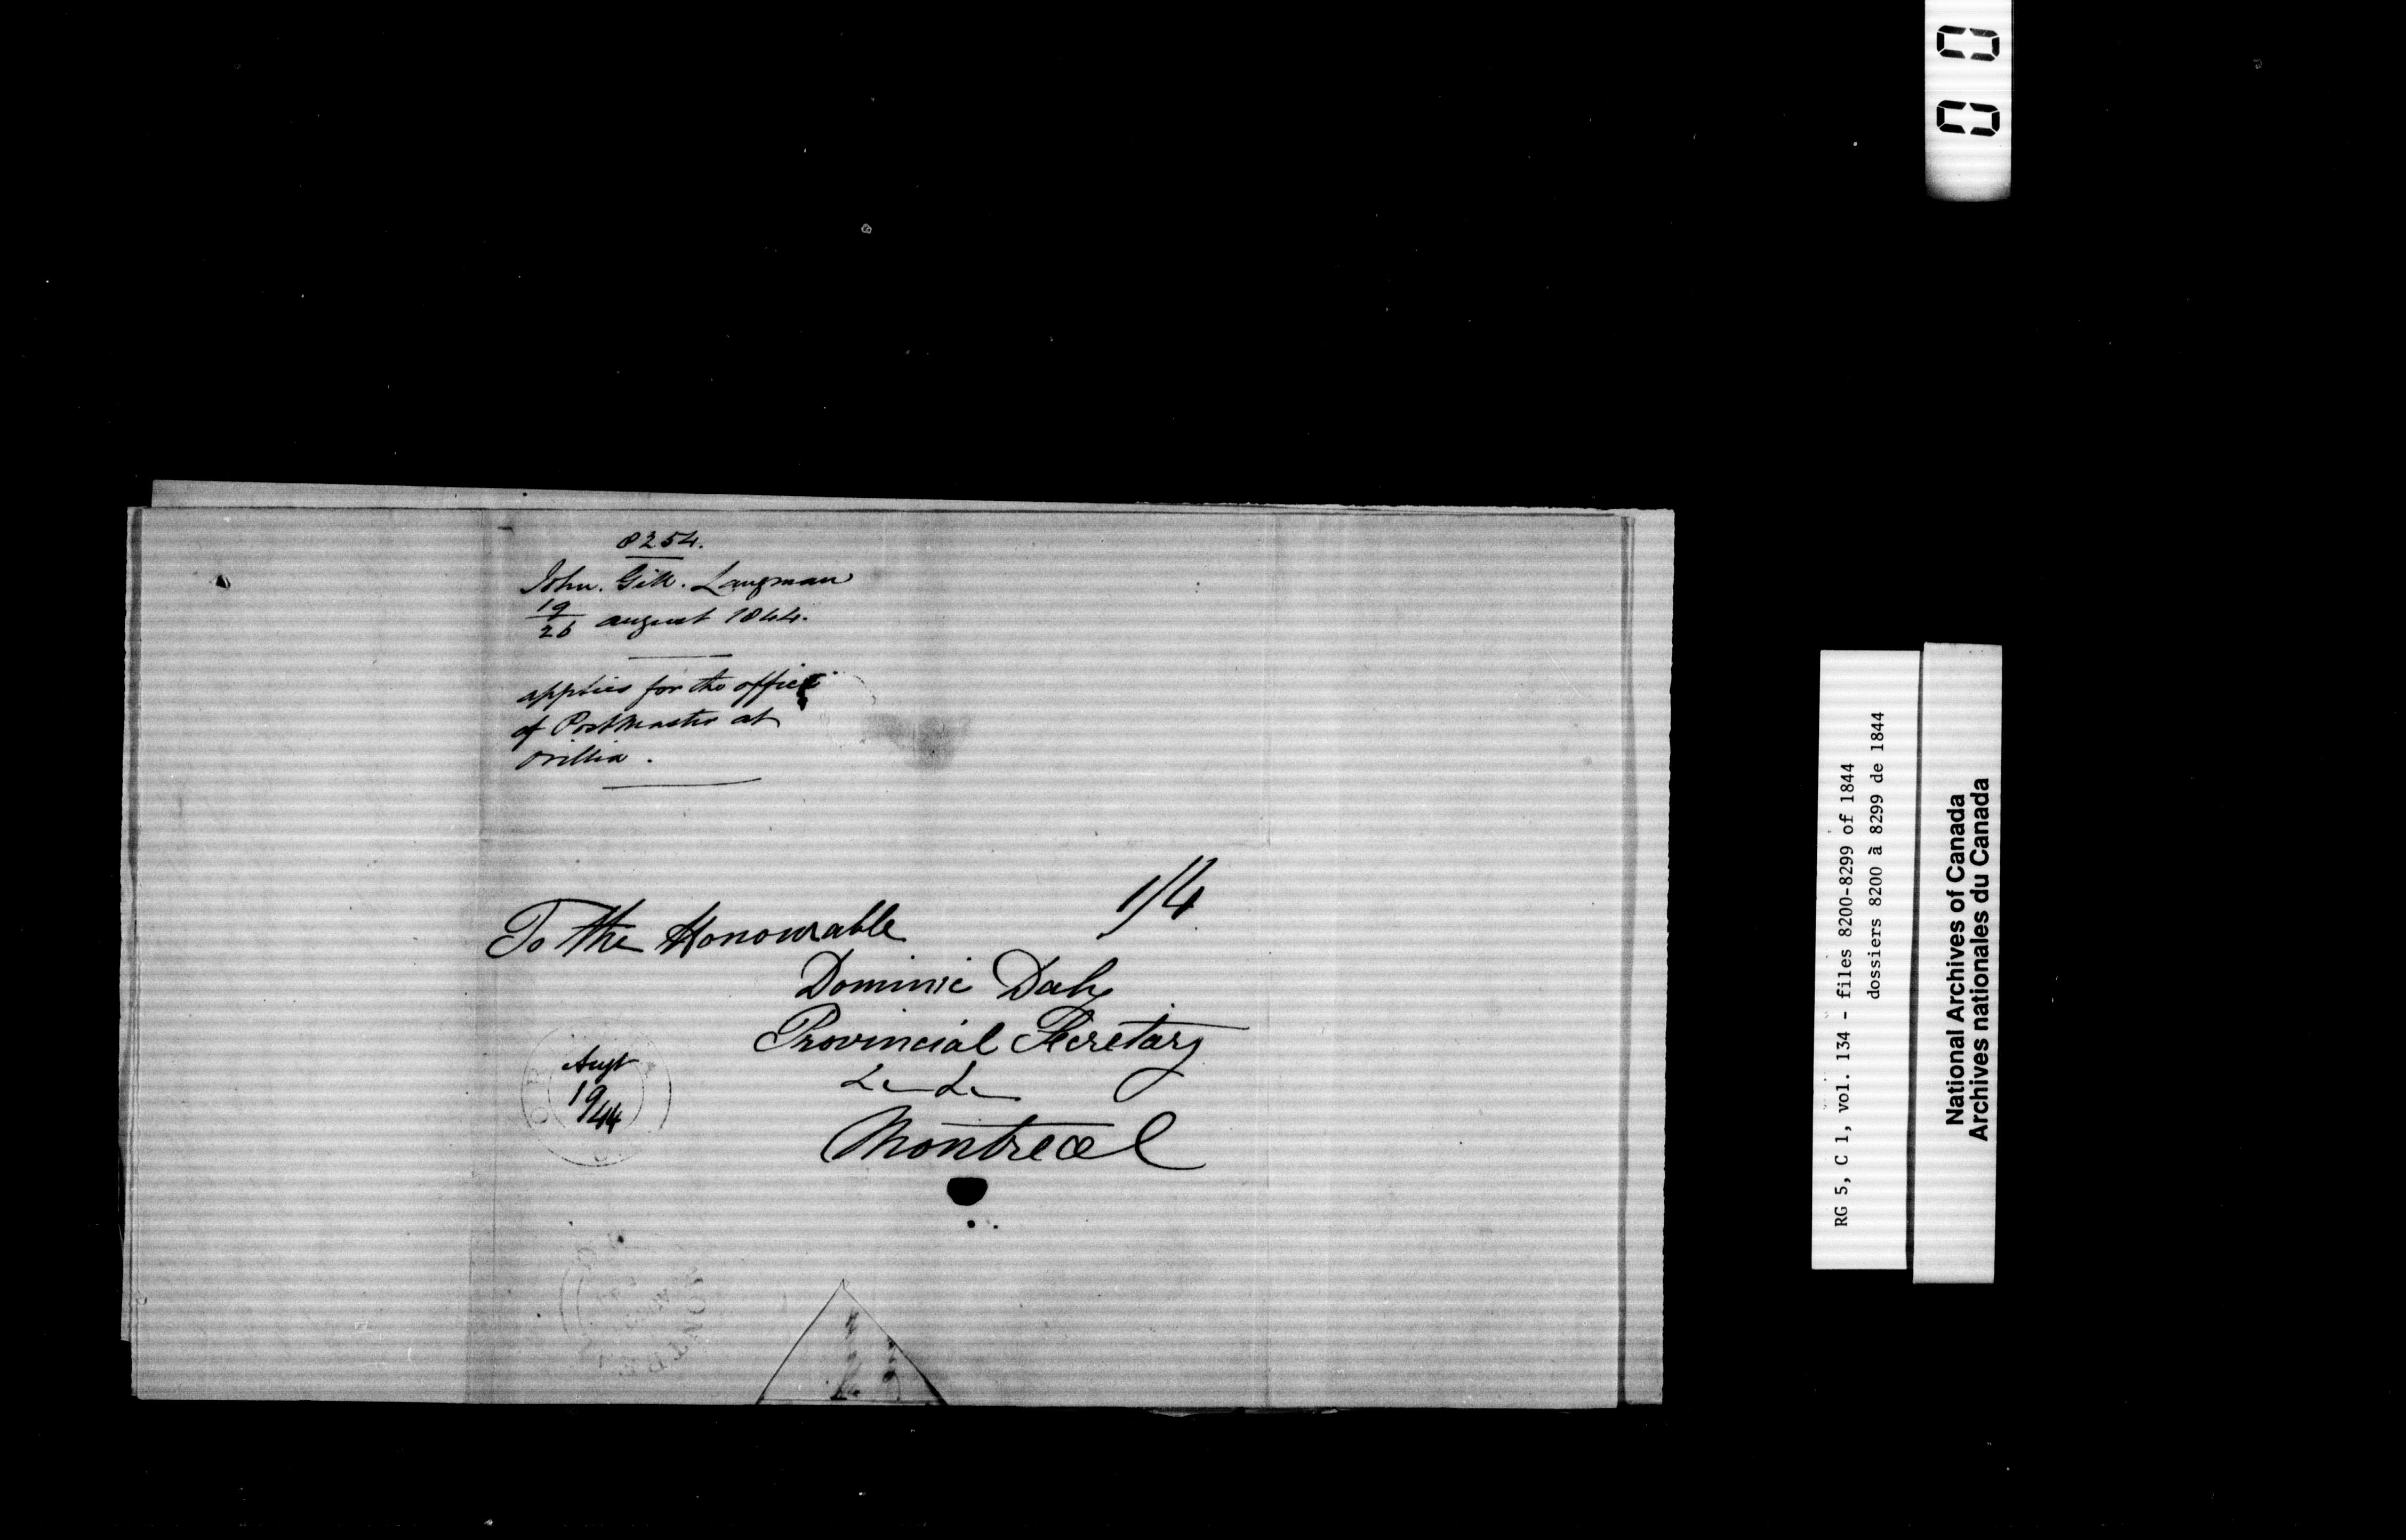 8254.
John. Gill. Langman
19
26 august 1844.
applies for the office
of Postmaster at
Orillia.
1/4
To the Honourable
Dominic Daly
Provincial Secretary
Montreal
Augt
19
44
RG 5, C 1, vol. 134 - files 8200-8299 of 1844
dossiers 8200 à 8299 de 1844
National Archives of Canada
Archives nationales du Canada